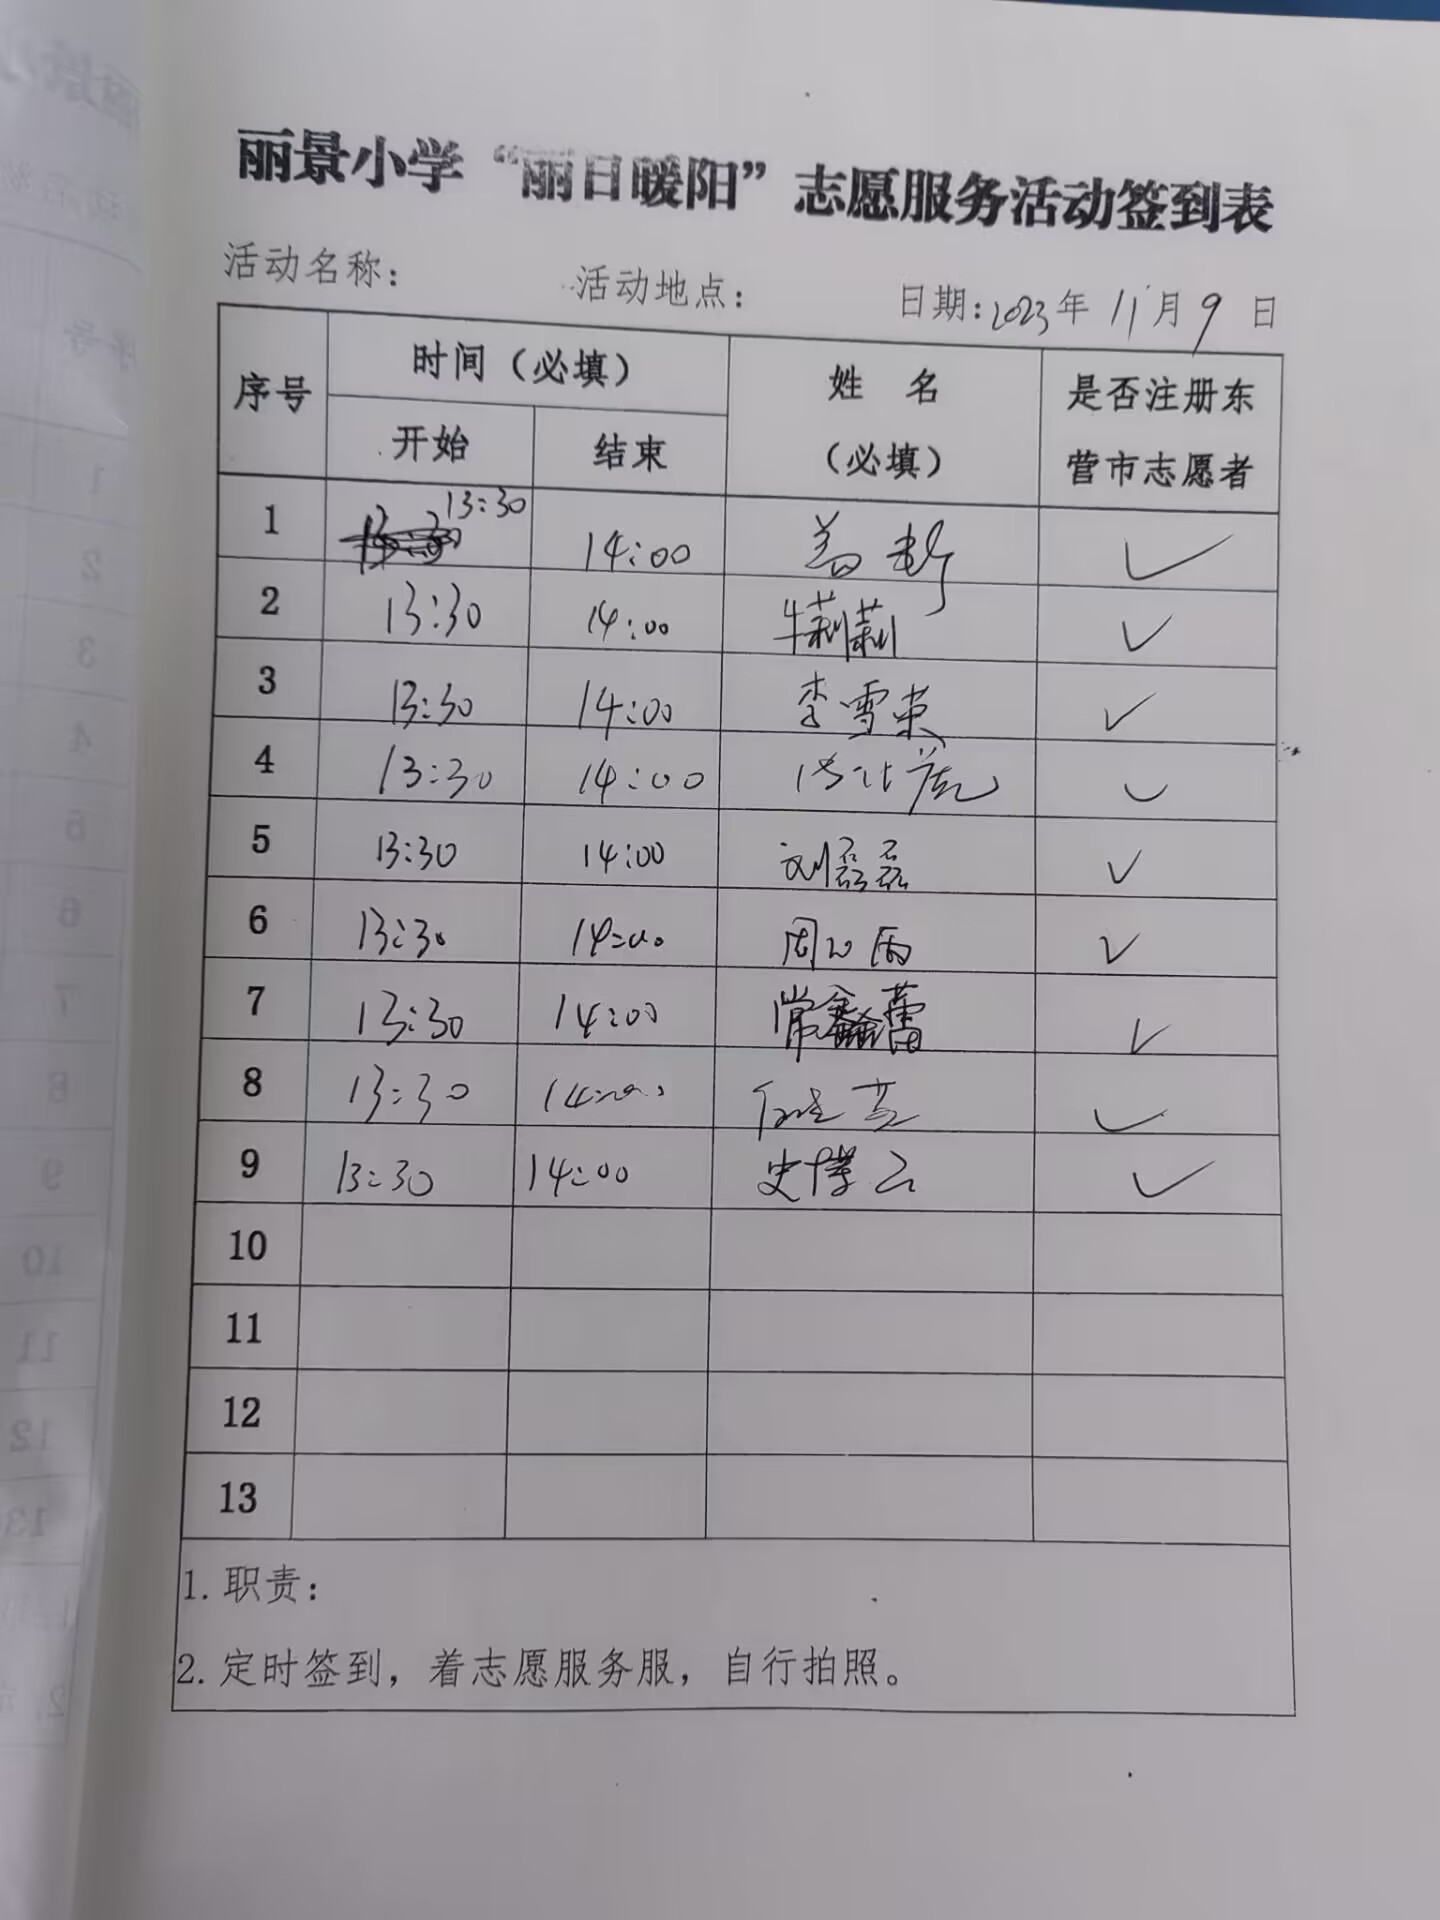 丽景小学“丽日暖阳”志愿服务活动签到表
活动名称： 活动地点： 日期：2023年 11月 9 日
序号 时间（必填） 姓 名 （必填） 是否注册东营市志愿者
开始 结束
1 13:30 14:00 ✓
2 13:30 14:00 牛莉莉 ✓
3 13:30 14:00 李雪荣 ✓
4 13:30 14:00 ✓
5 13:30 14:00 刘磊磊 ✓
6 13:30 14:00 周 雨 ✓
7 13:30 14:00 常鑫蕾 ✓
8 13:30 14:00 ✓
9 13:30 14:00 史 云 ✓
10
11
12
13
1. 职责：
2. 定时签到，着志愿服务服，自行拍照。